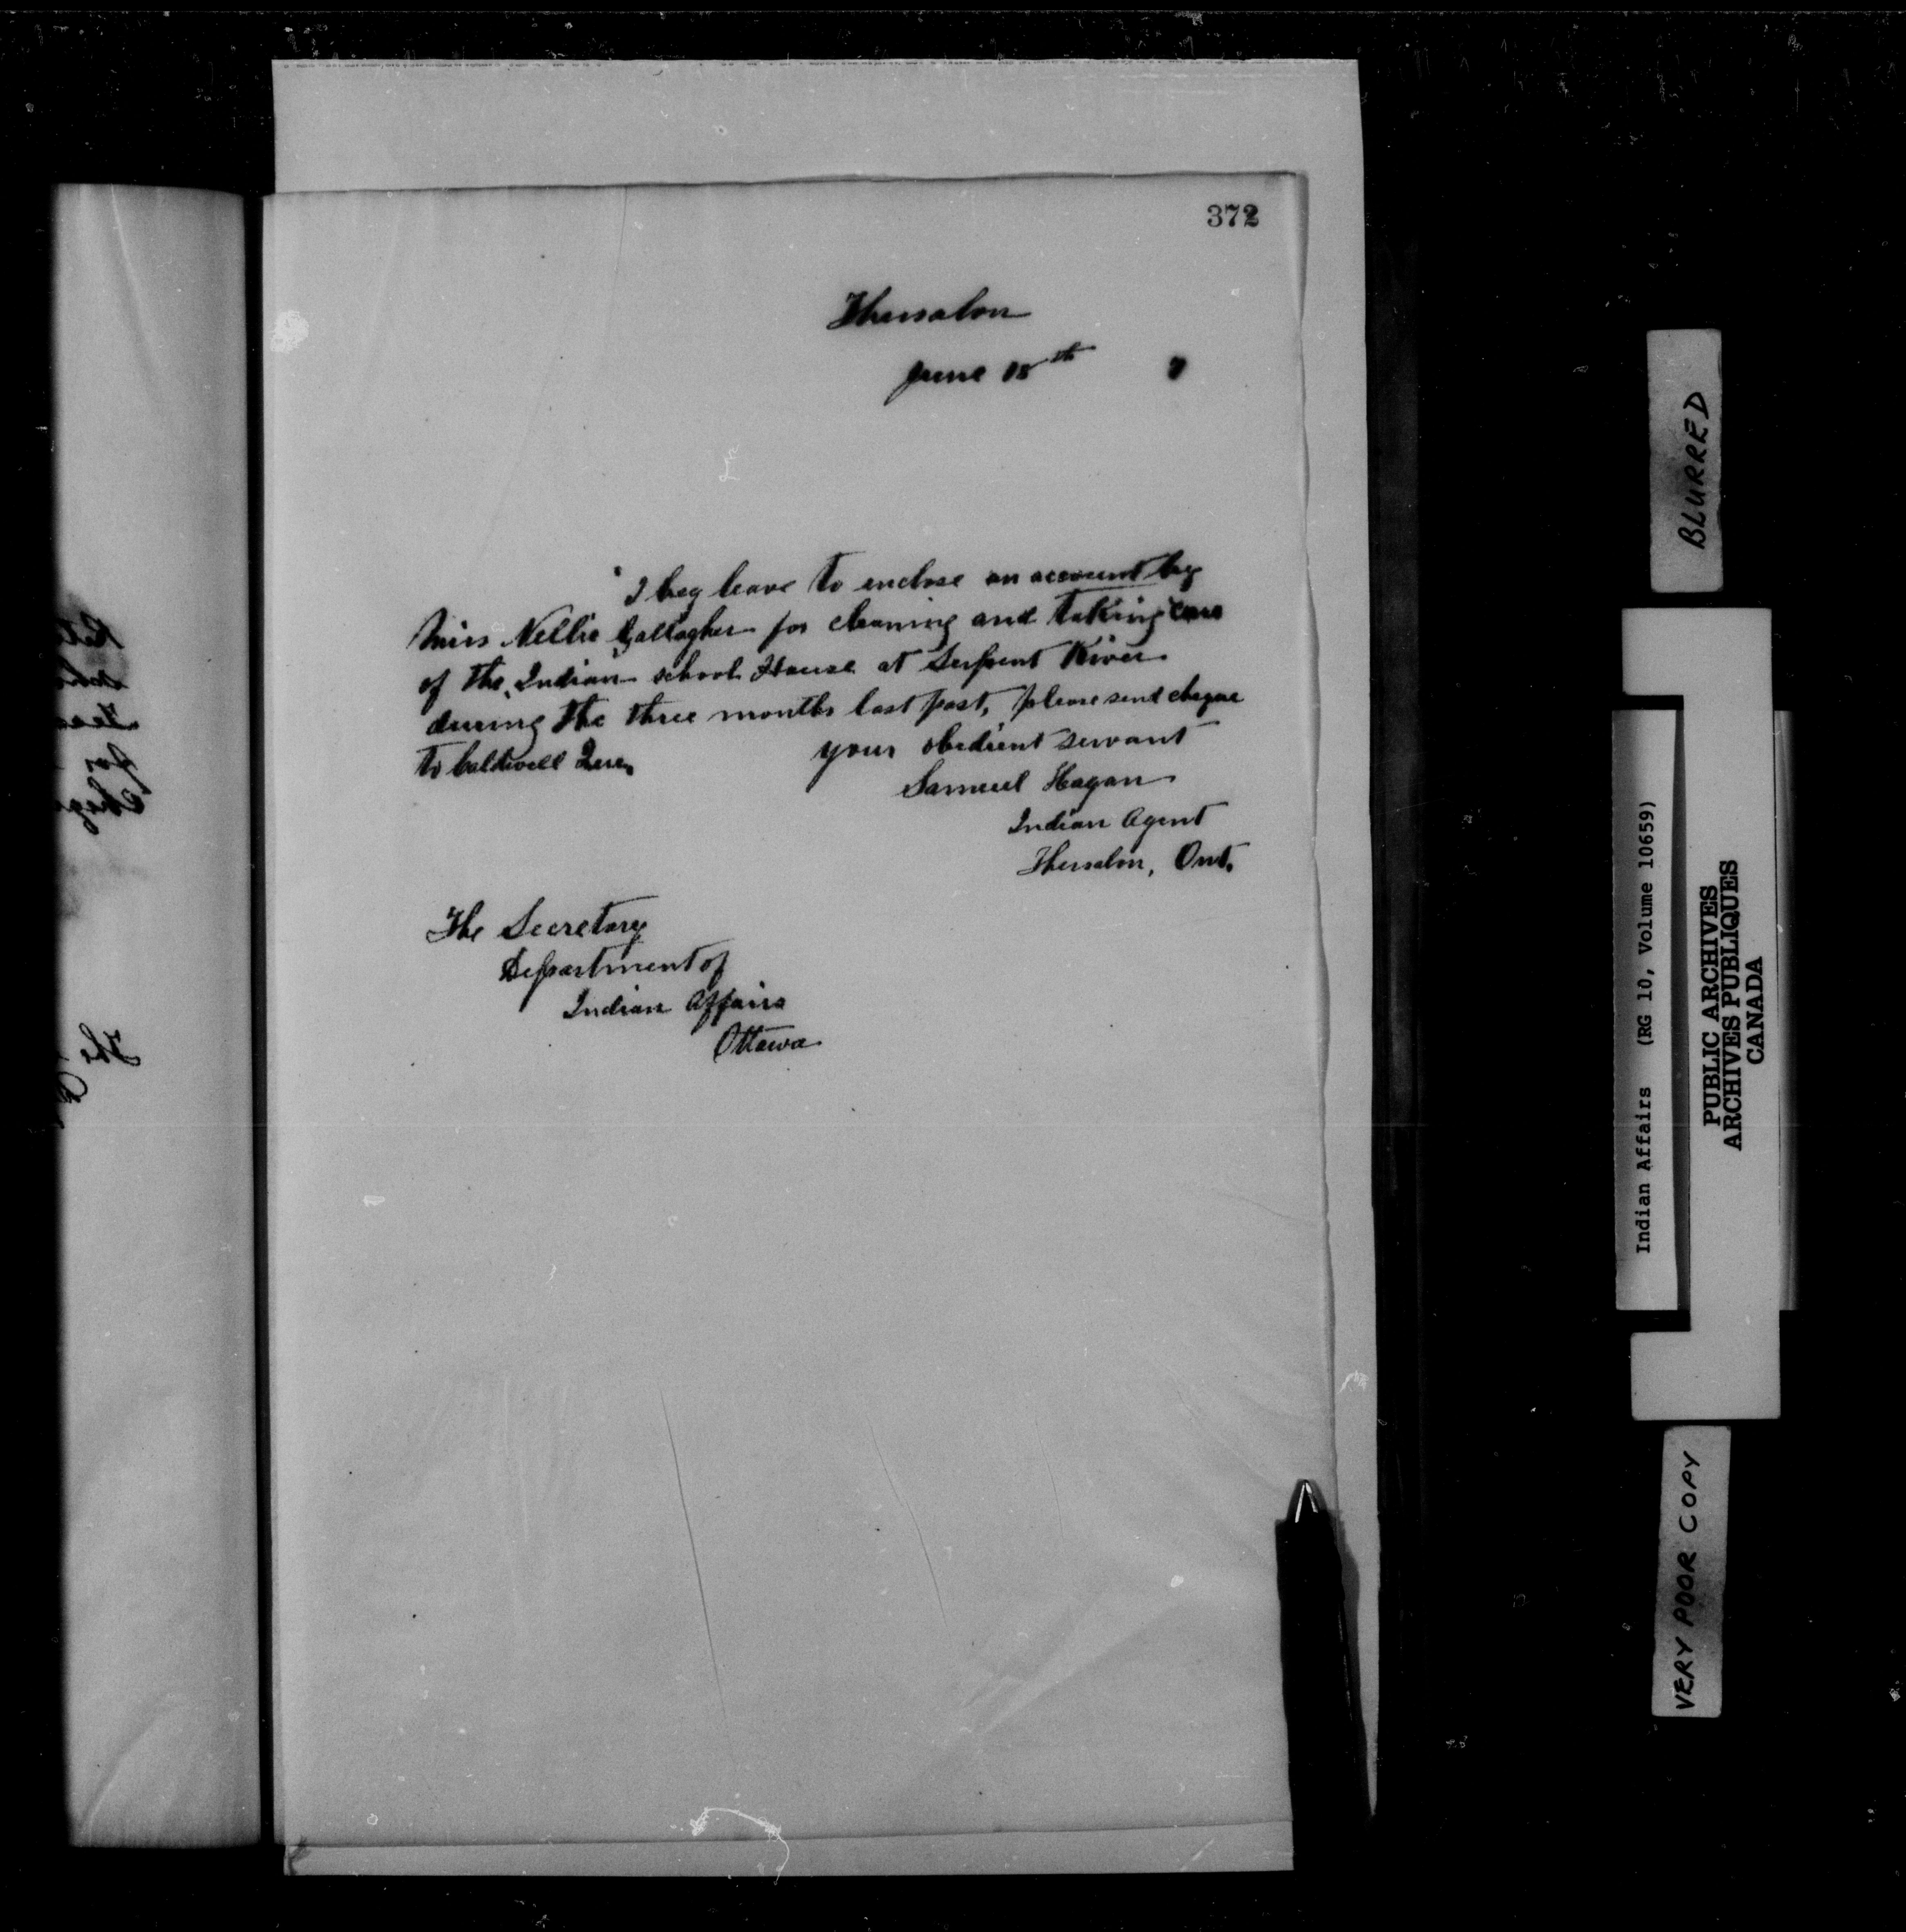 372
Thessalon
June 18th 7
I beg leave to enclose an account by
Miss Nellie Gallagher for cleaning and taking care
of the Indian school House at Serpent River
during the three months last past, please send cheque
to Caldwell
your obedient servant
Samuel Hagan
Indian Agent
Thessalon, Ont.
The Secretary
Department of
Indian Affairs
Ottawa
BLURRED
Indian Affairs (RG 10, Volume 10659)
PUBLIC ARCHIVES
ARCHIVES PUBLIQUES
CANADA
VERY POOR COPY